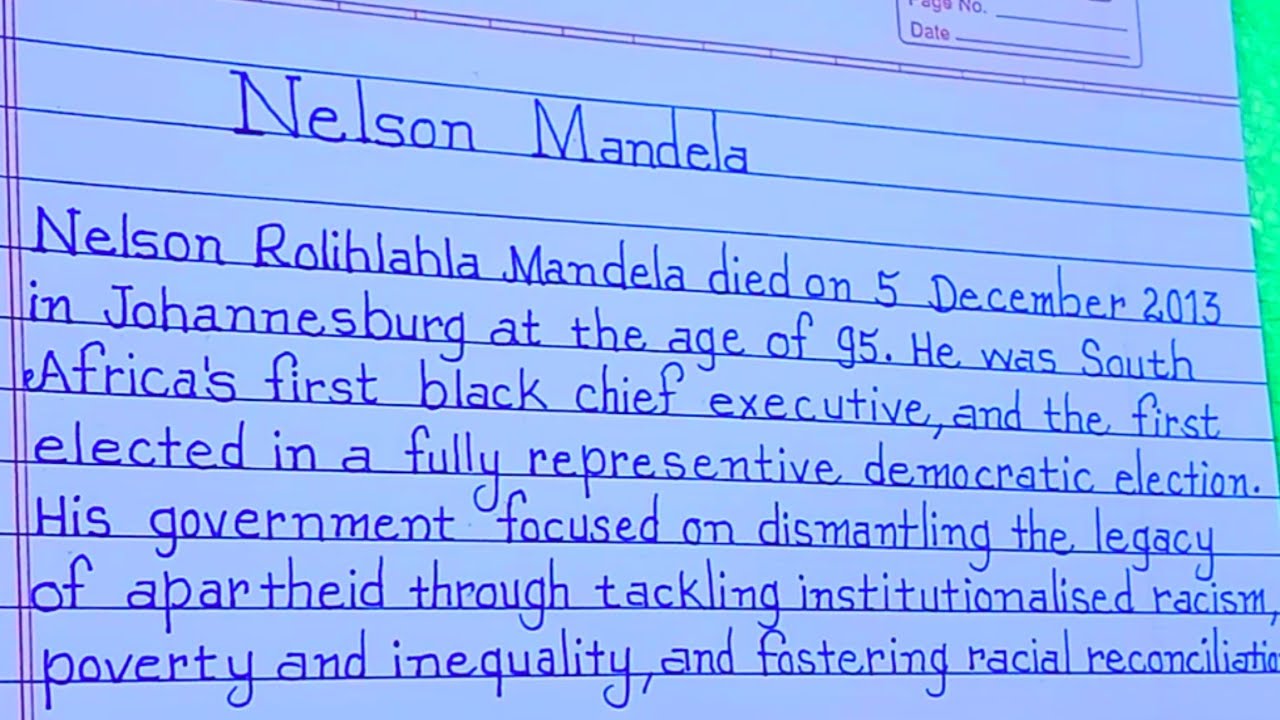 Page No.
Date
Nelson Mandela
Nelson Rolihlahla Mandela died on 5 December 2013
in Johannesburg at the age of 95. He was South
Africa's first black chief executive, and the first
elected in a fully representive democratic election.
His government focused on dismantling the legacy
of apartheid through tackling institutionalised racism,
poverty and inequality, and fostering racial reconciliatio